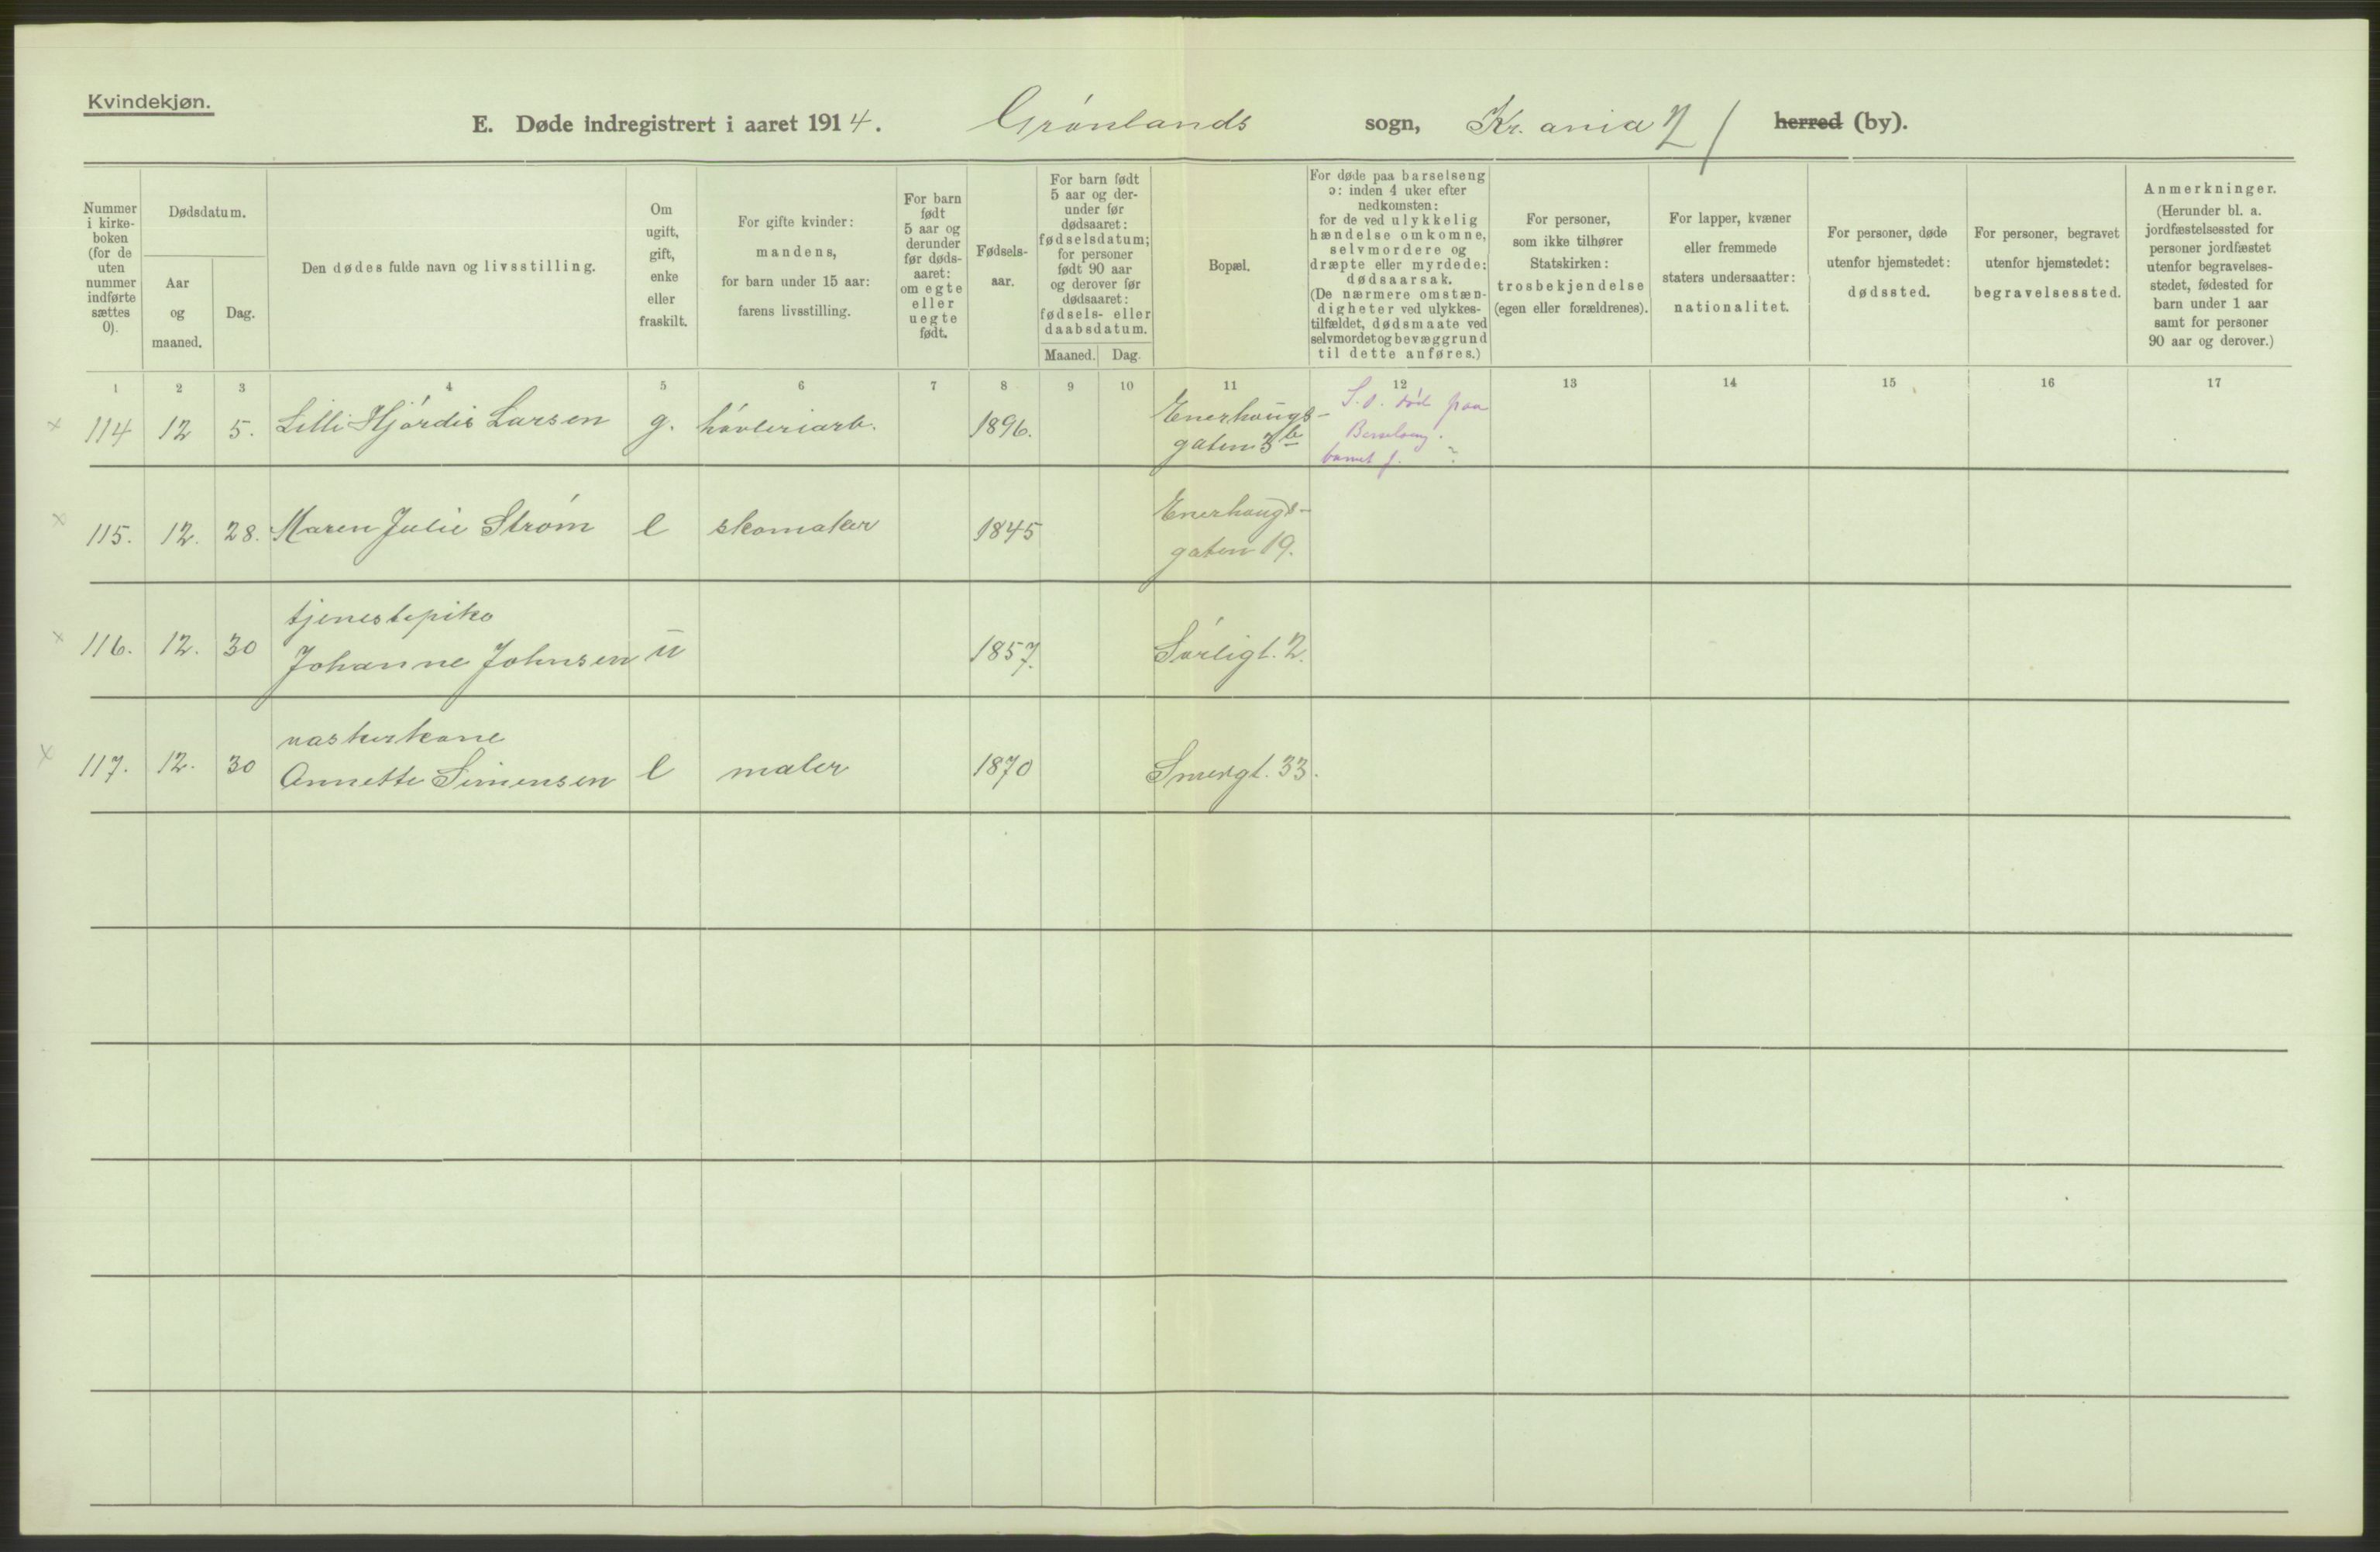 Kvindekjøn.
E. Døde indregistrert i aaret 1914. Grønlands sogn, Kr.ania herred (by).
Nummer i kirke-boken (for de uten nummer indførte sættes 0).
Dødsdatum.
Aar og maaned.
Dag.
Den dødes fulde navn og livsstilling.
Om ugift, gift, enke eller fraskilt.
For gifte kvinder: mandens, for barn under 15 aar: farens livsstilling.
For barn født 5 aar og derunder før døds-aaret: om egte eller uegte født.
Fødsels-aar.
For barn født 5 aar og der-under før dødsaaret: fødselsdatum; for personer født 90 aar og derover før dødsaaret: fødsels- eller daabsdatum.
Maaned. Dag.
Bopæl.
For døde paa barselseng ɔ: inden 4 uker efter nedkomsten: for de ved ulykkelig hændelse omkomne, selvmordere og dræpte eller myrdede: dødsaarsak. (De nærmere omstæn-digheter ved ulykkes-tilfældet, dødsmaate ved selvmordet og bevæggrund til dette anføres.)
For personer, som ikke tilhører Statskirken: trosbekjendelse (egen eller forældrenes).
For lapper, kvæner eller fremmede staters undersaatter: nationalitet.
For personer, døde utenfor hjemstedet: dødssted.
For personer, begravet utenfor hjemstedet: begravelsessted.
Anmerkninger. (Herunder bl. a. jordfæstelsessted for personer jordfæstet utenfor begravelses-stedet, fødested for barn under 1 aar samt for personer 90 aar og derover.)
1 2 3 4 5 6 7 8 9 10 11 12 13 14 15 16 17
× 114 12 5. Lilli Hjørdis Larsen g. høvleriarb. 1896. Enerhaugs-
gaten 3 b
død paa
Barselseng.
barnet f. ?
× 115. 12. 28. Maren Julie Strøm e skomaker 1845 Enerhaugs-
gaten 19.
tjenestepike
× 116. 12. 30 Johanne Johnsen u 1857. Sørligt. 2.
vaskerkone
× 117. 12. 30 Annette Simensen e maler 1870 Smergt. 33.